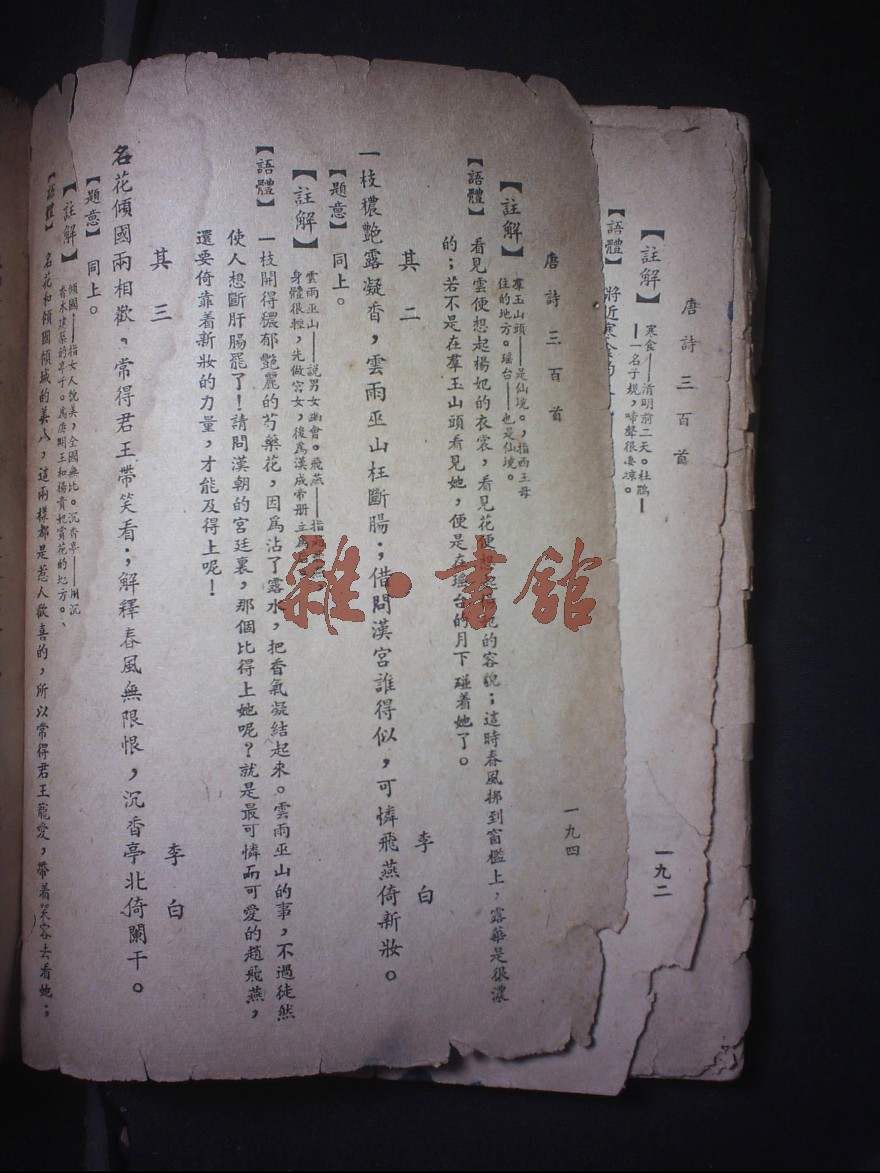 唐詩三百首
一九二
【註解】 寒食——清明前二天。杜鵑—
—一名子規,啼聲很凄凉。
【語體】 將近寒食的
唐詩三百首
一九四
【註解】 羣玉山頭——是仙境。,指西王母
住的地方。瑶台——也是仙境。
【語體】 看見雲便想起楊妃的衣裳,看見花便想起楊妃的容貌;這時春風拂到窗檻上,露華是很濃
的;若不是在羣玉山頭看見她,便是在瑶台的月下碰着她了。
其二 李白
一枝穠艷露凝香,雲雨巫山枉斷腸;借問漢宮誰得似,可憐飛燕倚新妝。
【題意】 同上。
【註解】 雲雨巫山——說男女幽會。飛燕——指
身體很輕,先做宮女,後爲漢成帝册立爲
【語體】 一枝開得穠郁艷麗的芍藥花,因爲沾了露水,把香氣凝結起來。雲雨巫山的事,不過徒然
使人想斷肝腸罷了!請問漢朝的宮廷裏,那個比得上她呢?就是最可憐而可愛的趙飛燕,
還要倚靠着新妝的力量,才能及得上呢!
其三 李白
名花傾國兩相歡,常得君王帶笑看;解釋春風無限恨,沉香亭北倚闌干。
【題意】 同上。
【註解】 傾國——指女人貌美,全國無比。沉香亭——用沉
香木建築的亭子。爲唐明王和楊貴妃賞花的地方。
【語體】 名花和傾國傾城的美人,這兩樣都是惹人歡喜的,所以常得君王寵愛,帶着笑容去看她;
雜·書館